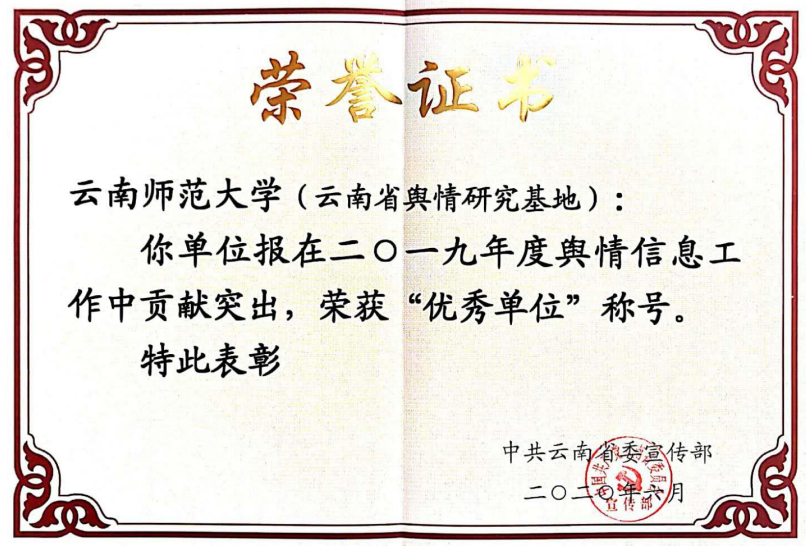 荣誉证书
云南师范大学（云南省舆情研究基地）：
你单位报在二〇一九年度舆情信息工
作中贡献突出，荣获“优秀单位”称号。
特此表彰
中共云南省委宣传部
二〇二〇年六月
宣传部